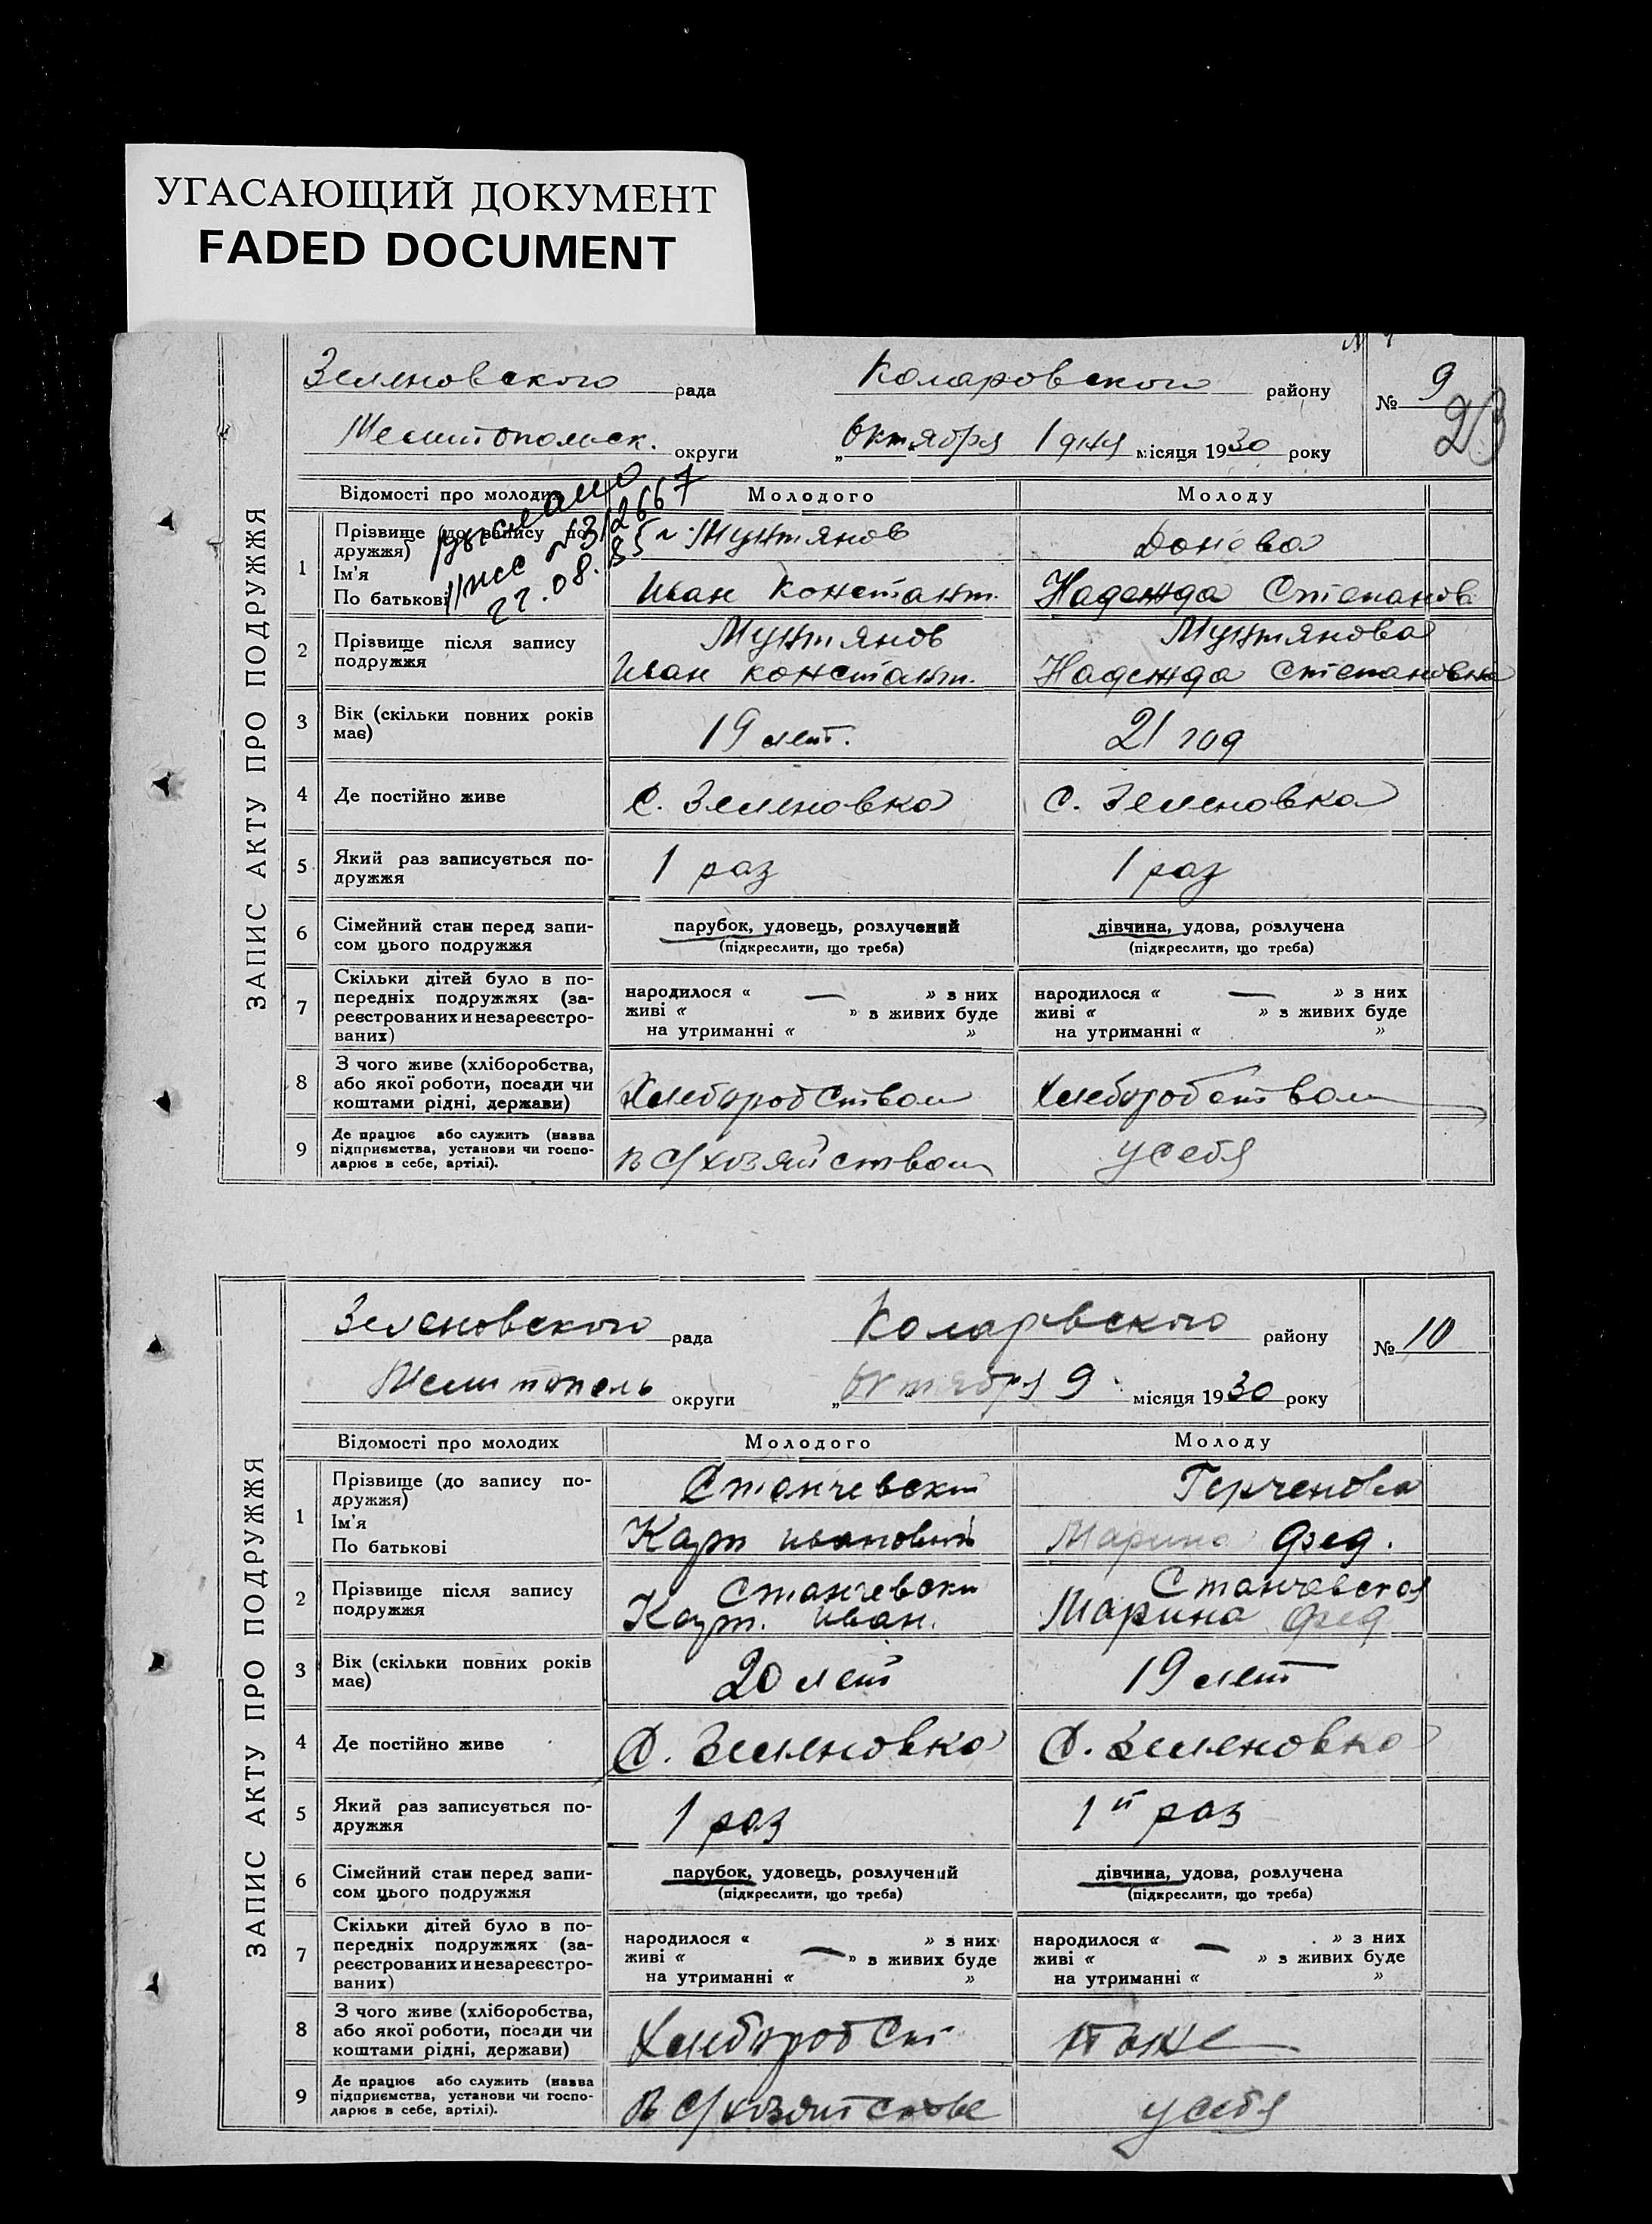 УГАСАЮЩИЙ ДОКУМЕНТ
FADED DOCUMENT
ЗАПИС АКТУ ПРО ПОДРУЖЖЯ
Зеленовского рада Коларовского району № 9
23
Мелитопольск. округи „ Октября 1 дня місяця 1930 року
Відомості про молодих Молодого Молоду
1 Прізвище (до запису подружжя) Мунтянов Донева
Ім'я
По батькові Иван Констант. Надежда Степанов
12667
22.08.85
2 Прізвище після запису Мунтянов Мунтянова
подружжя Иван Констант. Надежда Степановна
3 Вік (скільки повних років
має) 19 лет. 21 год
4 Де постійно живе С. Зеленовка С. Зеленовка
5 Який раз записується по-
дружжя 1 раз 1 раз
6 Сімейний стан перед запи- парубок, удовець, розлучений дівчина, удова, розлучена
сом цього подружжя (підкреслити, що треба) (підкреслити, що треба)
7 Скільки дітей було в по-
передніх подружжях (за- народилося « — » з них народилося « — » з них
реєстрованих и незареєстро- живі « » з живих буде живі « » з живих буде
ваних) на утриманні « » на утриманні « »
8 З чого живе (хліборобства,
або якої роботи, посади чи
коштами рідні, держави) Хлеборобством Хлеборобством
9 Де працює або служить (назва
підприємства, установи чи госпо-
дарює в себе, артілі). в с/хозяйством у себя
ЗАПИС АКТУ ПРО ПОДРУЖЖЯ
Зеленовского рада Коларовского району № 10
Мелитополь округи „ Октября 9 місяця 1930 року
Відомості про молодих Молодого Молоду
1 Прізвище (до запису по-
дружжя) Станчевски Герченова
Ім'я
По батькові Иванович Марина Фед.
2 Прізвище після запису Станчевски Станчевская
подружжя Иван. Марина Фед
3 Вік (скільки повних років
має) 20 лет 19 лет
4 Де постійно живе С. Зеленовка С. Зеленовка
5 Який раз записується по-
дружжя 1 раз 1й раз
6 Сімейний стан перед запи- парубок, удовець, розлучений дівчина, удова, розлучена
сом цього подружжя (підкреслити, що треба) (підкреслити, що треба)
7 Скільки дітей було в по-
передніх подружжях (за- народилося « — » з них народилося « — » з них
реєстрованих и незареєстро- живі « » з живих буде живі « » з живих буде
ваних) на утриманні « » на утриманні « »
8 З чого живе (хліборобства,
або якої роботи, посади чи
коштами рідні, держави) Хлебороб ст тоже
9 Де працює або служить (назва
підприємства, установи чи госпо-
дарює в себе, артілі). в с/хозяйстве у себя